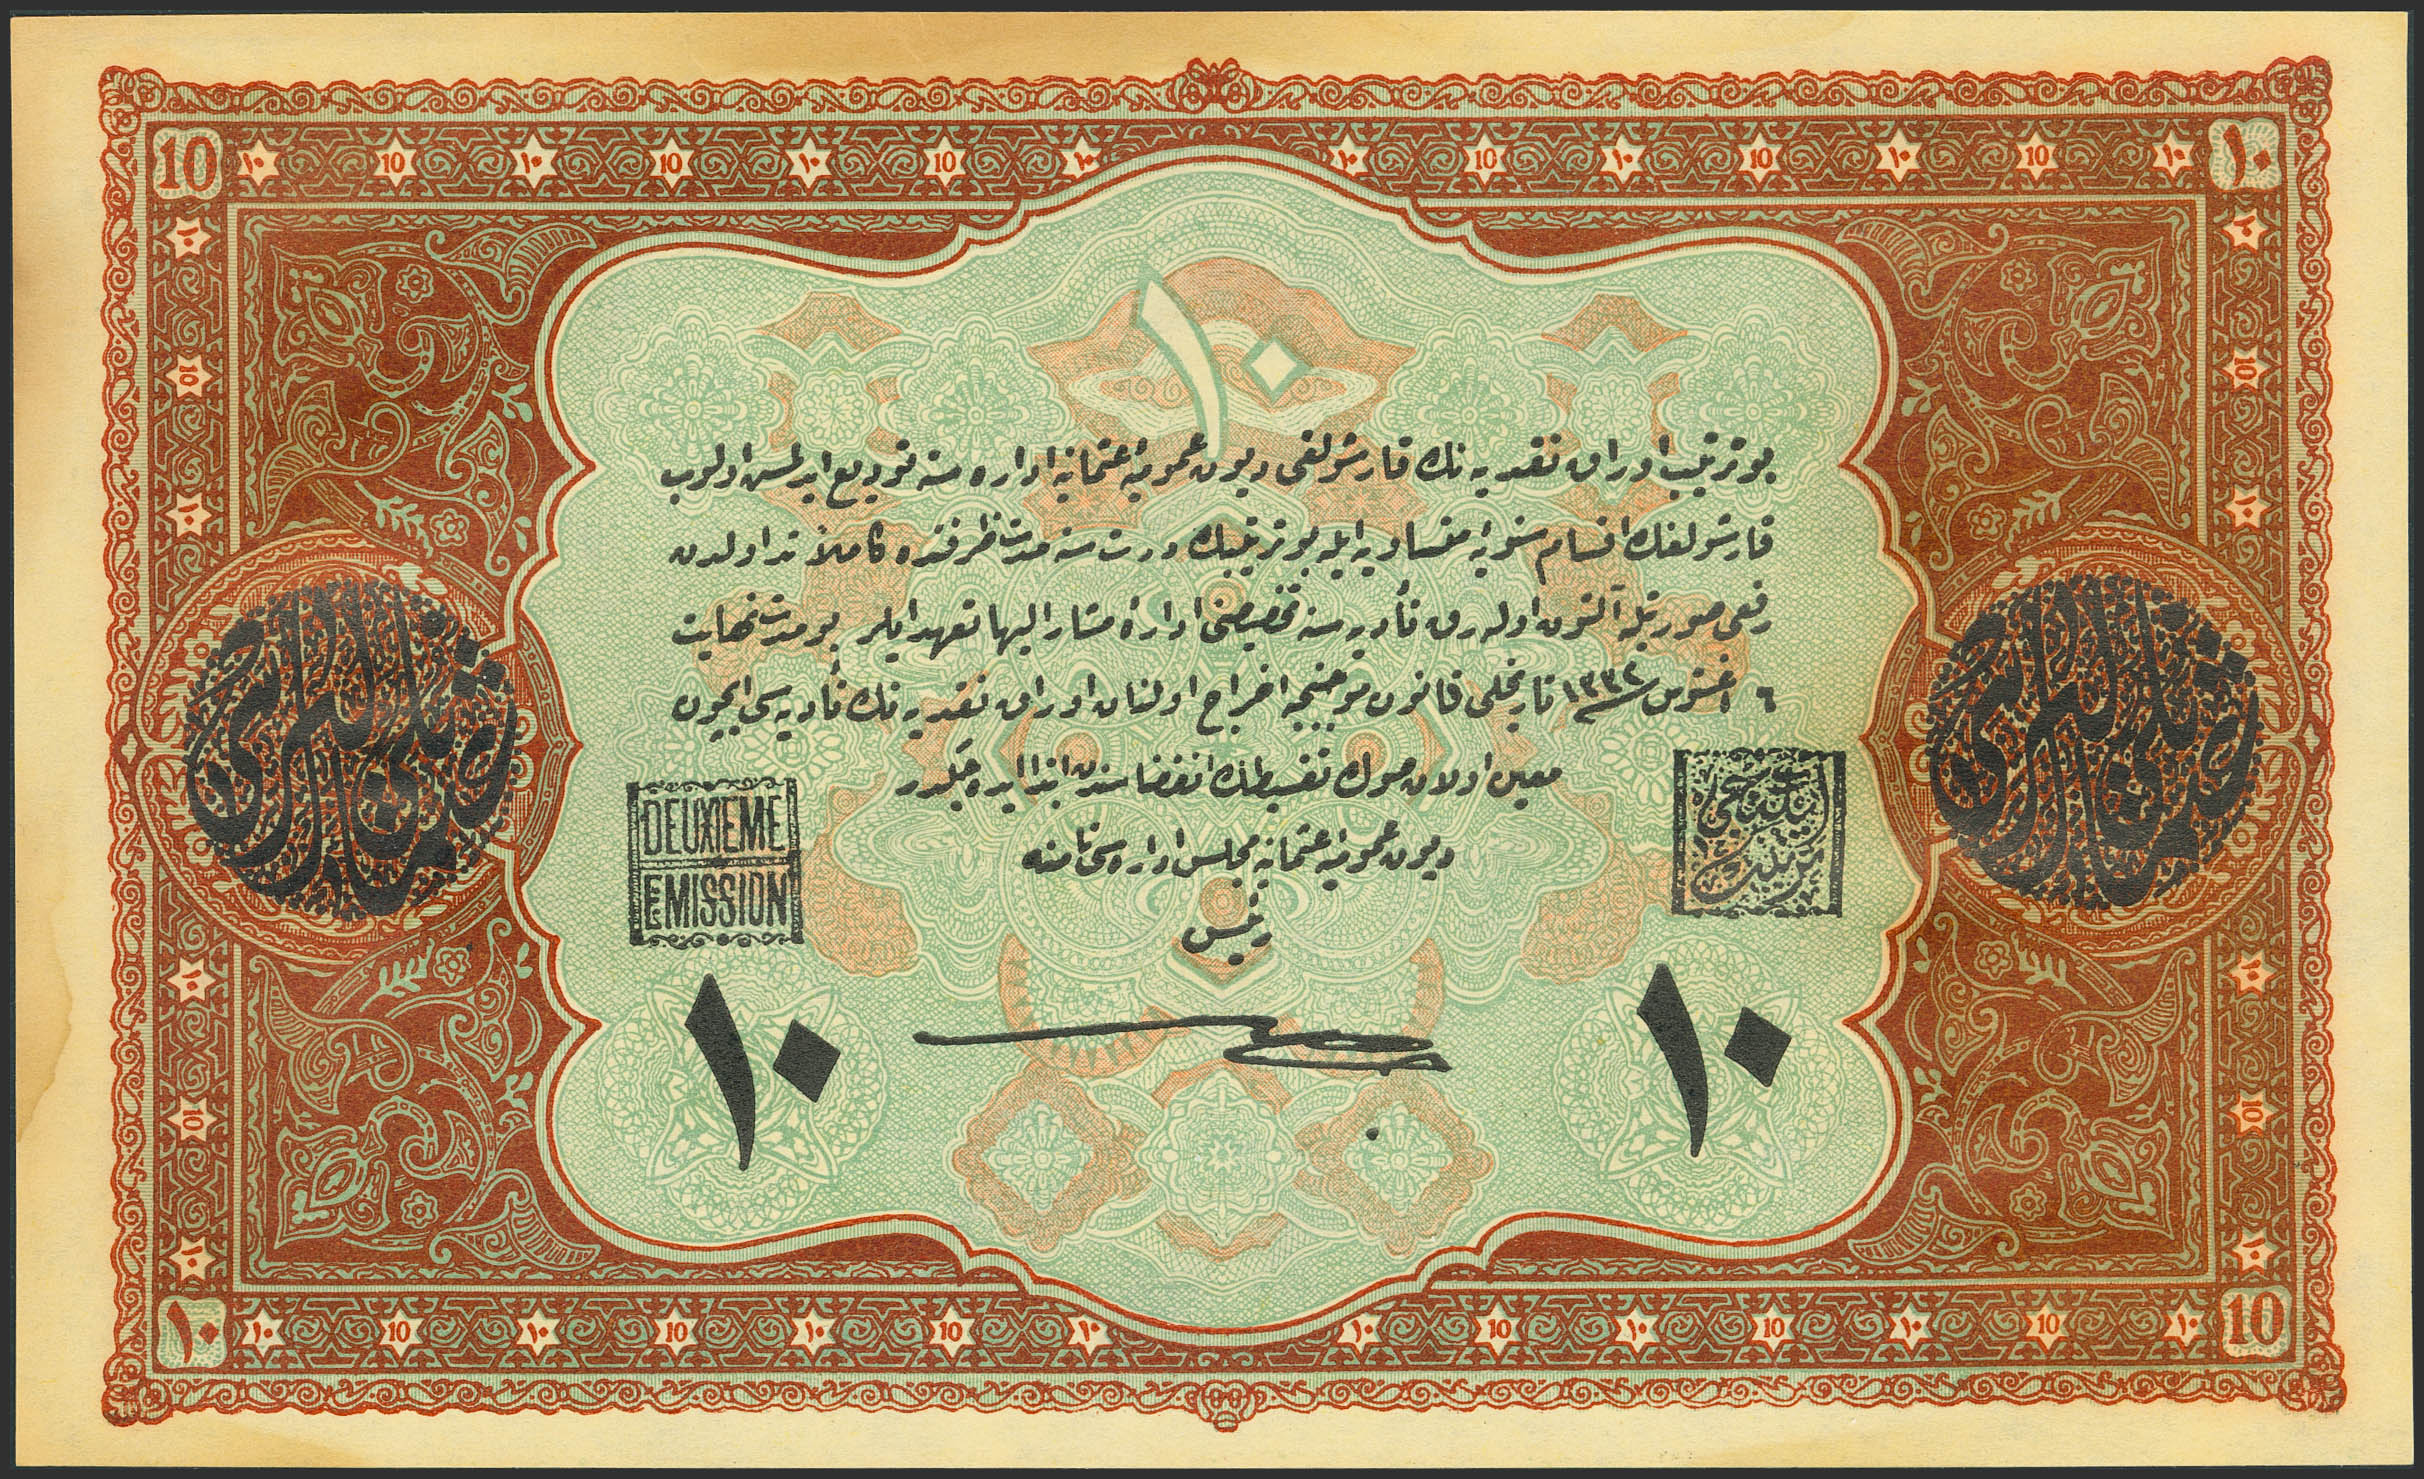 10 ١٠
١٠
بو ترتيب اوراق نقديه نك قارشولغى ديون عموميهٔ عثمانيه اداره سنه توديع ايدلمش اولوب
قارشولغك اقسام سنويهٔ متساويه ايله بو ترتيبك درت سنه مدت ظرفنده كاملاً تداولدن
رفعى صورتيله آلتون اوله رق تأديه سنه تخصيصنى ادارهٔ مشار اليها تعهد ايلر بو مدت نهايت
٦ اغستوس ١٣٣٢ تاريخلى قانون موجبنجه اخراج اولنان اوراق نقديه نك تأديه سى ايچون
معين اولان صوك تقسيطك انقضاسندن ابتدا ايده جكدر
ديون عموميهٔ عثمانيه مجلس اداره سى نامنه
رئيس
DEUXIEME
EMISSION
١٠ ١٠
١٠ 10